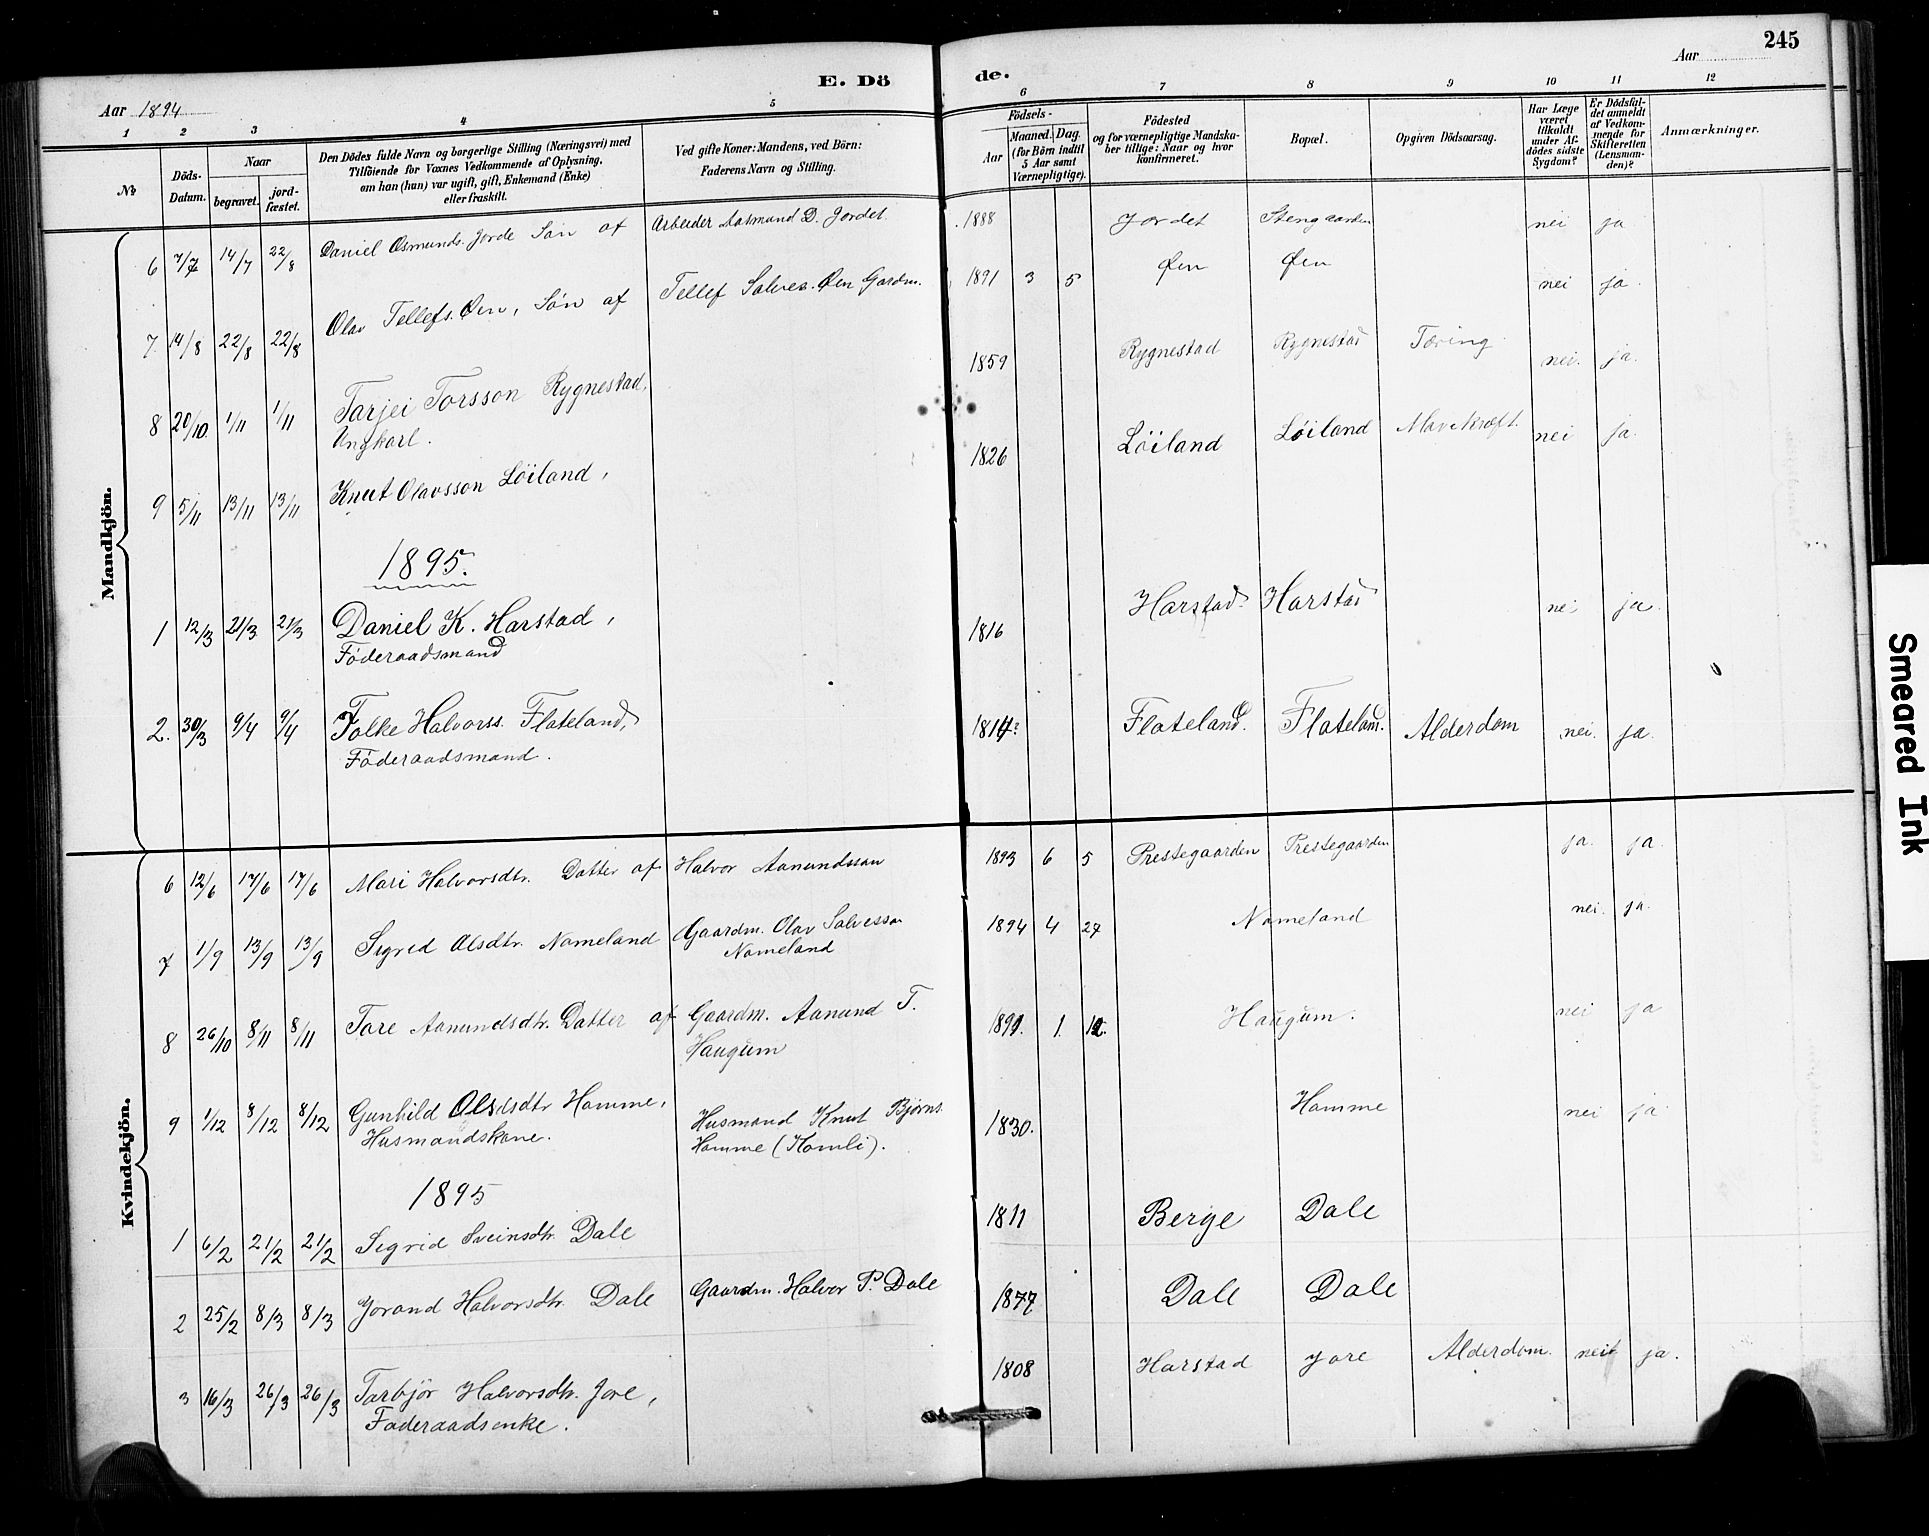 245
E. Dö de.
Aar 1894
Aar
1 2 3 4 5 6 7 8 9 10 11 12
No
Döds-Datum.
Naar
begravet.
jord-fæstet.
Den Dödes fulde Navn og borgerlige Stilling (Næringsvei) med
Tilföiende for Voxnes Vedkommende af Oplysning,
om han (hun) var ugift, gift, Enkemand (Enke)
eller fraskilt.
Ved gifte Koner: Mandens, ved Börn:
Faderens Navn og Stilling.
Födsels-
Aar
Maaned. Dag.
(for Börn indtil
5 Aar samt
Værnepligtige).
Födested
og for værnepligtige Mandska-
ber tillige: Naar og hvor
konfirmeret.
Bopæl.
Opgiven Dödsaarsag.
Har Læge
været
tilkaldt
under Af-
dödes sidste
Sygdom?
Er Dödsfal-
det anmeldt
af Vedkom-
mende for
Skifteretten
(Lensman-
den)?
Anmærkninger.
Mandkjön.
6 7/7 14/7 22/8 Daniel Osmunds. Jorde Søn af Arbeider Aasmund D. Jordet. 1888 Jordet Stengaarden nei ja
7. 14/8 22/8 22/8 Olav Tellefs. Øen, Søn af Tellef Salves. Øen Gardm. 1891 3 5 Øen Øen nei ja.
8 20/10. 1/11 1/11 Tarjei Torsson Rygnestad, 1859 Rygnestad Rygnestad Tæring nei. ja.
Ungkarl.
9 5/11 13/11 13/11 Knut Olavsson Löiland, 1826 Löiland Löiland Mavekræft. nei ja.
1895.
1 12/3 21/3 21/3 Daniel K. Harstad, 1816 Harstad. Harstad nei ja.
Föderaadsmand
2. 30/3 9/4 9/4 Folke Halvorss. Flateland, 1814? Flateland. Flateland. Alderdom nei. ja.
Föderaadsmand.
Kvindekjön.
6 12/6 17/6 17/6 Mari Halvorsdtr. Datter af Halvor Aanundsson 1893 6 5 Prestegaarden Prestegaarden ja. ja.
7 1/9 13/9 13/9 Sigrid Olsdtr. Nomeland Gaardm. Olav Salvesson 1894 4 27 Nomeland nei. ja.
Nomeland
8 26/10 8/11 8/11 Tore Aanundsdtr. Datter af Gaardm. Aanund T. 1891. 1. 12. Haugum. nei ja
Haugum
9 1/12 8/12 8/12 Gunhild Olsdtr Homme, Husmand Knut Bjørns. 1830. Homme nei ja
Husmandskone. Homme (Homli).
1895
1 6/2 21/2 21/2 Sigrid Sveinsdtr. Dale 1811 Berge Dale
2 25/2 8/3 8/3 Jorand Halvorsdtr. Dale Gaardm. Halvor P. Dale 1877 Dale Dale
3 16/3 26/3 26/3 Tarbjör Halvorsdtr. Jore, 1808 Harstad Jore Alderdom. nei ja.
Föderaadsenke.
Smeared Ink